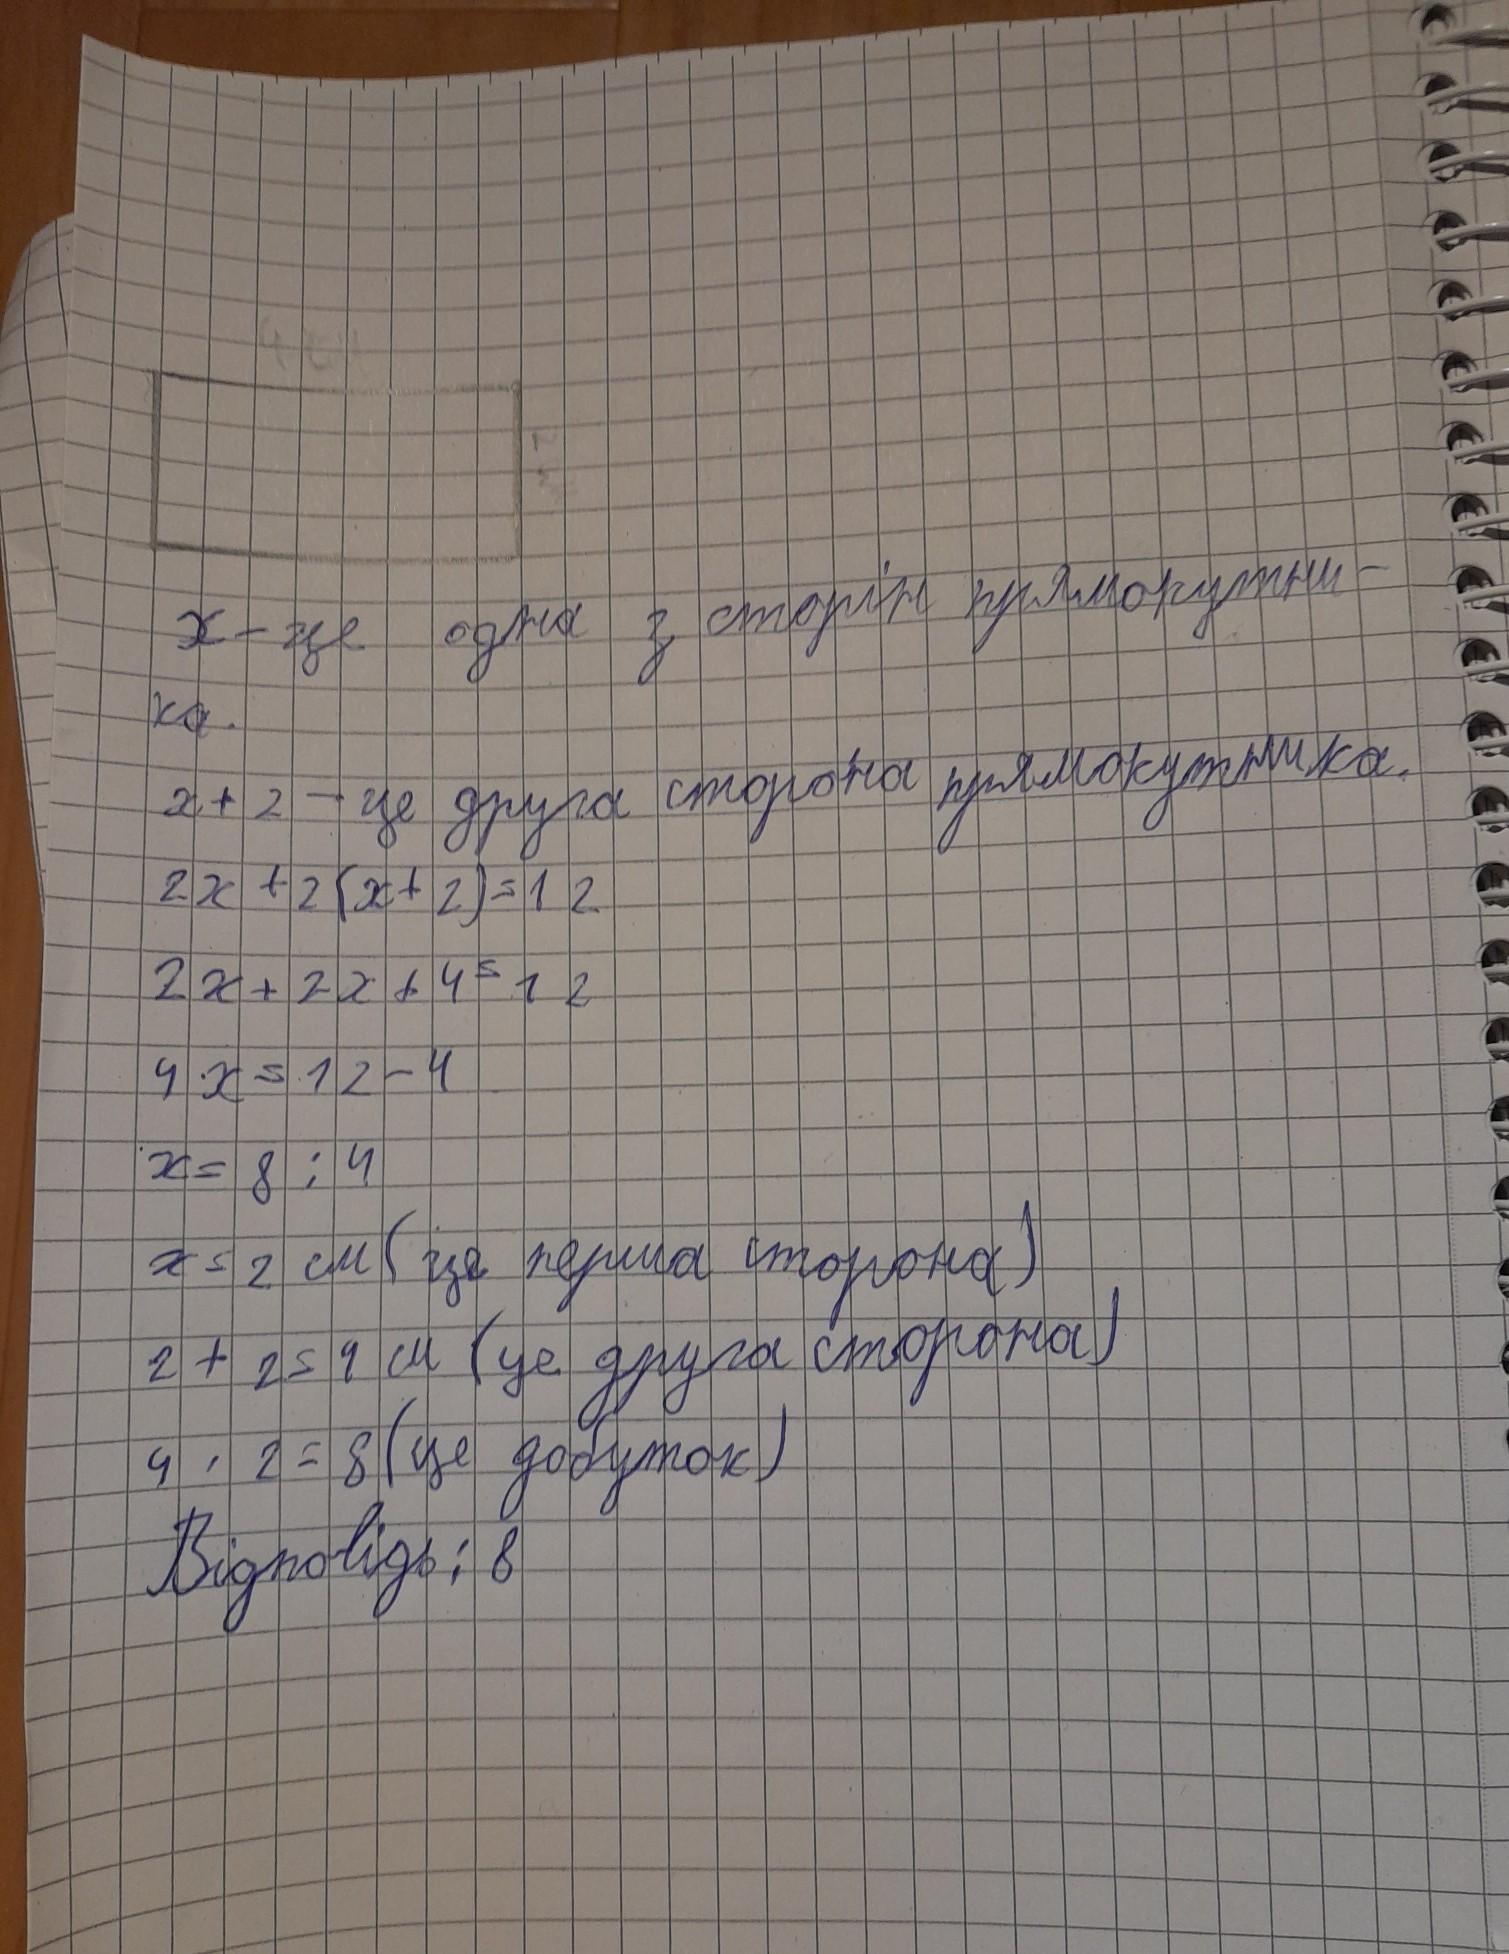 x - це одна з сторін прямокутни-
ка.
x + 2 - це друга сторона прямокутника.
2x + 2(x + 2) = 12
2x + 2x + 4 = 12
4x = 12 - 4
x = 8 : 4
x = 2 см (це перша сторона)
2 + 2 = 4 см (це друга сторона)
4 · 2 = 8 (це добуток)
Відповідь: 8